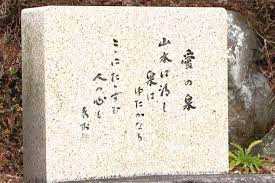 愛の泉
山水は清し
泉は
ゆたかなり
こゝにたゝずむ
人の心も